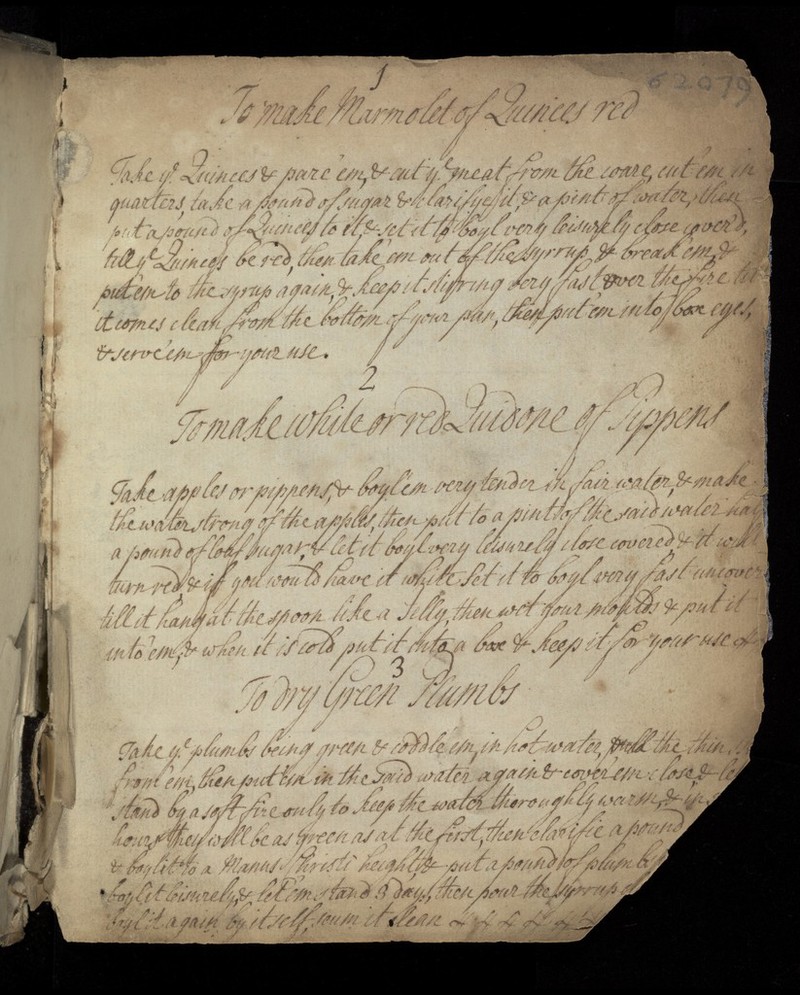 1
62079
To make Marmolet of Quinces red
Take yͤ Quinces & pare 'em, & cut yͤ meat from the coare, cut 'em in
quarters, take a pound of sugar & clarifye it, & a pint of water, then
put a pound of Quinces to it, & set it to boyl very leisurely close cover'd,
till yͤ Quinces be red, then take 'em out of the syrrup, & break 'em, &
put 'em to the syrup again, & keep it stirring very fast over the fire till
it comes clean from the bottom of your pan, then put 'em into boxeyes,
& serve 'em for your use.
2
To make white or red Quidone of Pippens
Take apples or pippens, & boyl 'em very tender in fair water, & make
the water strong of the apples, then put to a pint of the said water half
a pound of loaf sugar, & let it boyl very leisurely close covered & it will
turn red, & if you would have it white set it to boyl very fast uncover
till it hang at the spoon like a Jilly, then wet your moulds & put it
into 'em, & when it is cold put it into a box & keep it for your use
3
To dry Green Plumbs
Take yͤ plumbs being green & coddle 'em, in hot water, pull the thin
from 'em, then put 'em in the said water again & cover 'em close & le
stand by a soft fire only to keep the water thoroughly warm, & in
hours they will be as green as at the first, then clarifie a pound
& boyl it to a Manus Christi height, & put a pound of plumbs
boyl it leisurely, & let 'em stand 3 days, then pour the syrrup
boyl it again by it self, scum it clean